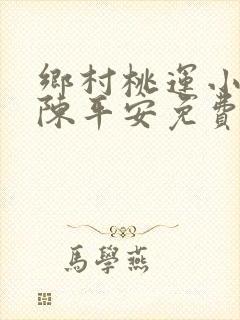 鄉村桃運小
陳平安免費
馬學燕